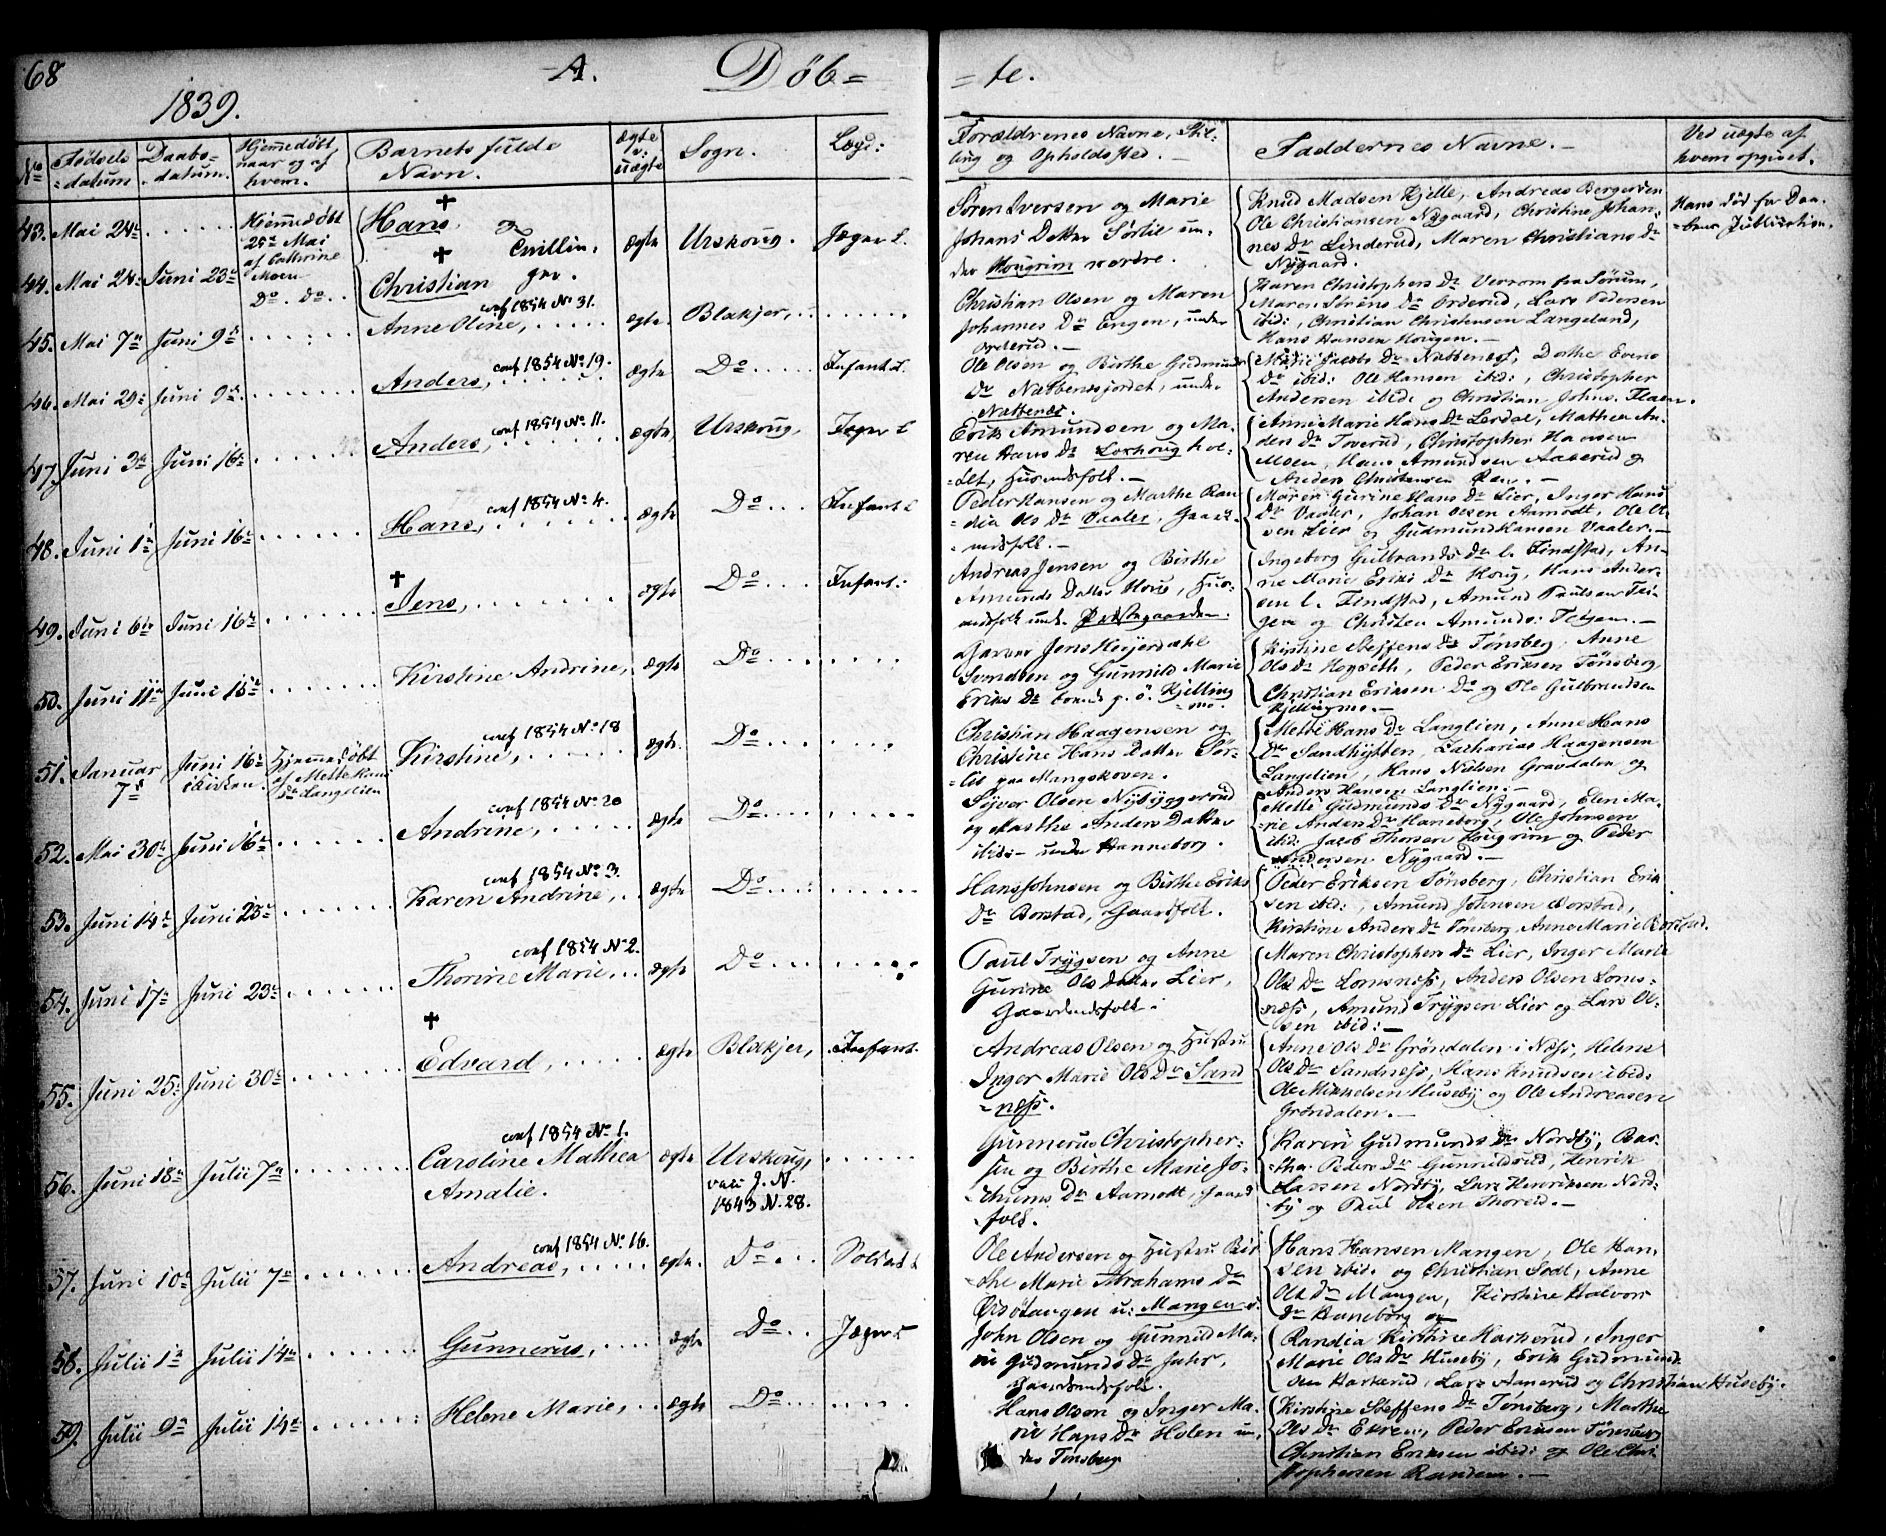 68 A. Døb= =te.
1839.
No Fødsels=datum Daabs=datum. Hjemmedøbt naar og af hvem. Barnets fulde Navn. Ægte v: uægte Sogn. Lægd: Forældrenes Navne, Stilling og Opholdssted. Faddernes Navne. Ved uægte af hvem opgivet.
43. Mai 24de Hjemmedøbt 25de Mai af Cathrine Moen Hans og Tvillinger. ægte Urskoug. Jæger L.
44. Mai 24de Juni 23de Do. Do. Christian
Søren Iversen og Marie
Johans Datter Sørlie un-
der Hougrim nordre.
Knud Madsen Kjelle, Andreas Bergersen
Ole Christiansen Nygaard, Christine Johan-
nes Dr Linderud, Maren Christians Dr
Nygaard.
Hans død før Daa-
bens Publication.
45. Mai 7de Juni 9de conf 1854 No 31. Anne Oline, ægte Blakjer,
Christian Olsen og Maren
Johannes Dr Engen, under
Orderud.
Karen Christophers Dr Vernom fra Sørum,
Maren Sørens Dr Orderud, Lars Pedersen
ibid:, Christian Christensen Langeland,
Hans Hansen Hougen.
46. Mai 29de Juni 9de conf 1854 No 19. Anders, ægte Do Infant L.
Ole Olsen og Birthe Gudmunds
Dr Nattenesjordet, under
Nattenes.
Marie Jacobs Dr Nattenes, Dorthe Evens
Dr ibid: Ole Hansen ibid:, Christopher
Andersen ibid: og Christian Johns: Flaen.
47. Juni 3de Juni 16de conf 1854 No 11. Anders, ægte Urskoug, Jæger L
Erik Amundsen og Ma-
ren Hans Dr Lorhoug hol-
det, Huusmdsfolk.
Anne Marie Hans Dr Lerdal, Mathea An-
ders Dr Tverud, Christopher Hansen
Moen, Hans Amundsen Aaserud og
Anders Christensen Røen.
48. Juni 1ste Juni 16de conf 1854 No 4. Hans, ægte Do Infant L
Peder Hansen og Marthe Ran
dia Ols Dr Vaaler, Gaard-
mdsfolk.
Maren Gurine Hans Dr Lier, Inger Hans
Dr Vaaler, Johan Olsen Aamodt, Ole Ol-
sen Lier og Gudmund Hansen Vaaler.
49. Juni 6te Juni 16de Jens, ægte Do Infant:
Andreas Jensen og Birthe
Amunds Datter Hous, Huus-
mdsfolk under Præstegaarden.
Ingeborg Gulbrands Dr l. Findstad, An-
ne Marie Eriks Dr Houg, Hans Ander-
sen l. Findstad, Amund Paulsen Tei-
gen og Christen Amunds: Teigen.
50. Juni 11te Juni 15de Kirstine Andrine, ægte Do
Garver Jens Heijerdahl
Svendsen og Gunnild Marie
Eriks Dr boende p. ø. Kjelling
mo.
Kirstine Steffens Dr Tønsberg, Anne
Ols Dr Hoyseth, Peder Eriksen Tønsberg
Christian Eriksen Do og Ole Gulbrandsen
Kjellingmo.
51. Januar 7de Juni 16de i Kirken. Hjemmedøbt af Mette Hans Dr Langelien conf 1854 No 18 Kirstine, ægte. Do
Christian Haagensen og
Christine Hans Datter Sør-
lie paa Mangskoven.
Mette Hans Dr Langlien, Anne Hans
Dr Sandhytten, Zacharias Haagensen
Langelien, Hans Nielsen Gravdalen og
Anders Hansen Langlien.
52. Mai 30te Juni 16de conf 1854 No 20 Andrine, ægte Do
Syver Olsen Nybyggerud
og Marthe Anders Datter
ibid: under Hanneborg.
Mette Gudmunds Dr Nygaard, Elen Ma-
rie Anders Dr Haneborg, Ole Johnsen
ibid: Jacob Thorsen Hougrim og Peder
Andersen Nygaard.
53. Juni 14de Juni 23de conf 1854 No 3. Karen Andrine, ægte Do
Hans Johnsen og Birthe Eriks
Dr Borstad, Gaardfolk.
Peder Eriksen Tønsberg, Christian Erik
sen ibid:, Amund Johnsen Borstad,
Kirstine Anders Dr Tønsberg, Anne Marie Borstad.
54. Juni 17de Juni 23de conf 1854 No 2. Thorine Marie, ægte Do
Paul Trygsen og Anne
Gurine Ols Datter Lier,
Gaardmdsfolk.
Maren Christophers Dr Lier, Inger Marie
Ols Dr Lomsness, Anders Olsen Loms-
ness, Amund Trygsen Lier og Lars Ol-
sen ibid:
55. Juni 25de Juni 30te Edvard, ægte Blakjer, Infant.
Andreas Olsen og Hustru
Inger Marie Ols Dr Sand
ness.
Anne Ols Dr Grøndalen i Næss, Helene
Ols Dr Sandness, Hans Knudsen ibid:
Ole Mikkelsen Huseby og Ole Andreasen
Grøndalen.
56. Juni 18de Julii 7de conf 1854 No 1. Caroline Mathea Amalie. ægte Urskoug, vacc J. N. 1843 N. 28.
Gunnerus Christopher-
sen og Birthe Marie Jo-
chums Dr Aamott, Gaard
folk.
Karen Gudmunds Dr Nordby, Bar-
tha Peders Dr Gunnildrud, Henrik
Larsen Nordby, Lars Henriksen Nord-
by og Paul Olsen Thoreid.
57. Juni 10de Julii 7de conf 1854 No 16. Andreas, ægte. Do Soldat L
Ole Andersen og Hustru Bir
the Marie Abrahams Dr
Øisøtangen u: Mangen.
Hans Hansen Mangen, Ole Han-
sen ibid: og Christian Sodt, Anne
Ols Dr Mangen, Kirstine Halvors
Dr Haneborg og
58. Julii 1ste Julii 14de Gunnerus, ægte Do Jæger L
John Olsen og Gunnild Ma-
rie Gudmunds Dr Jahr,
Gaardmdsfolk.
Randia Kirstine Harkerud, Inger
Marie Ols Dr Huseby, Erik Gudmund
sen Harkerud, Lars Aanerud og Christian Huseby.
59. Julii 9de Julii 14de Helene Marie, ægte Do
Hans Olsen og Inger Ma-
rie Hans Dr Holen un-
der Tønsberg
Kirstine Steffens Dr Tønsberg, Marthe
Ols Dr Ekren, Peder Eriksen Tønsberg
Christian Eriksen ibid: og Ole Chri-
stophersen Randem.